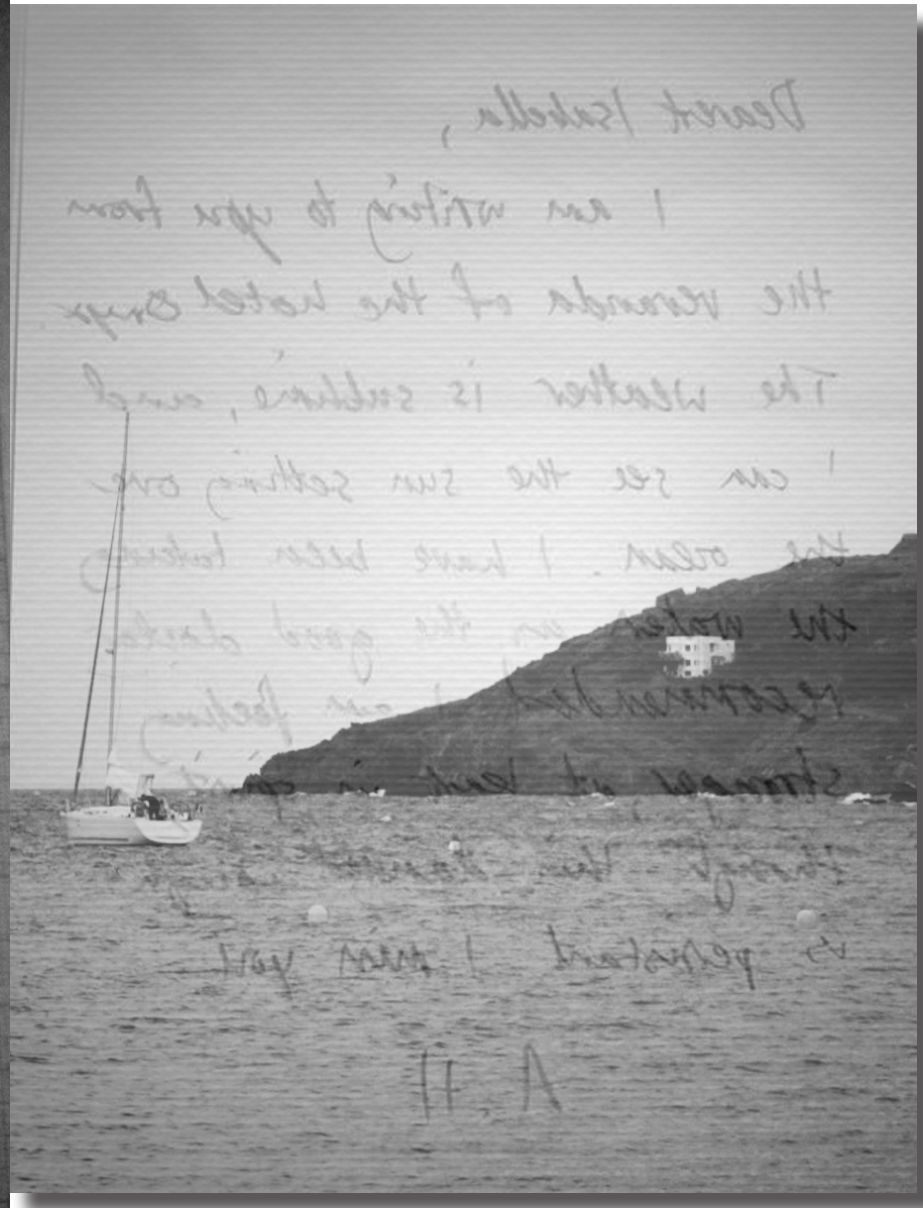 Dearest Isabella,
I am writing to you from
the veranda of the hotel
The weather is sublime, and
I can see the sun setting over
the ocean. I have been taking
the waters as the good doctor
recommended. I am feeling
stronger, at least in
though the
is persistant I miss you
A. H